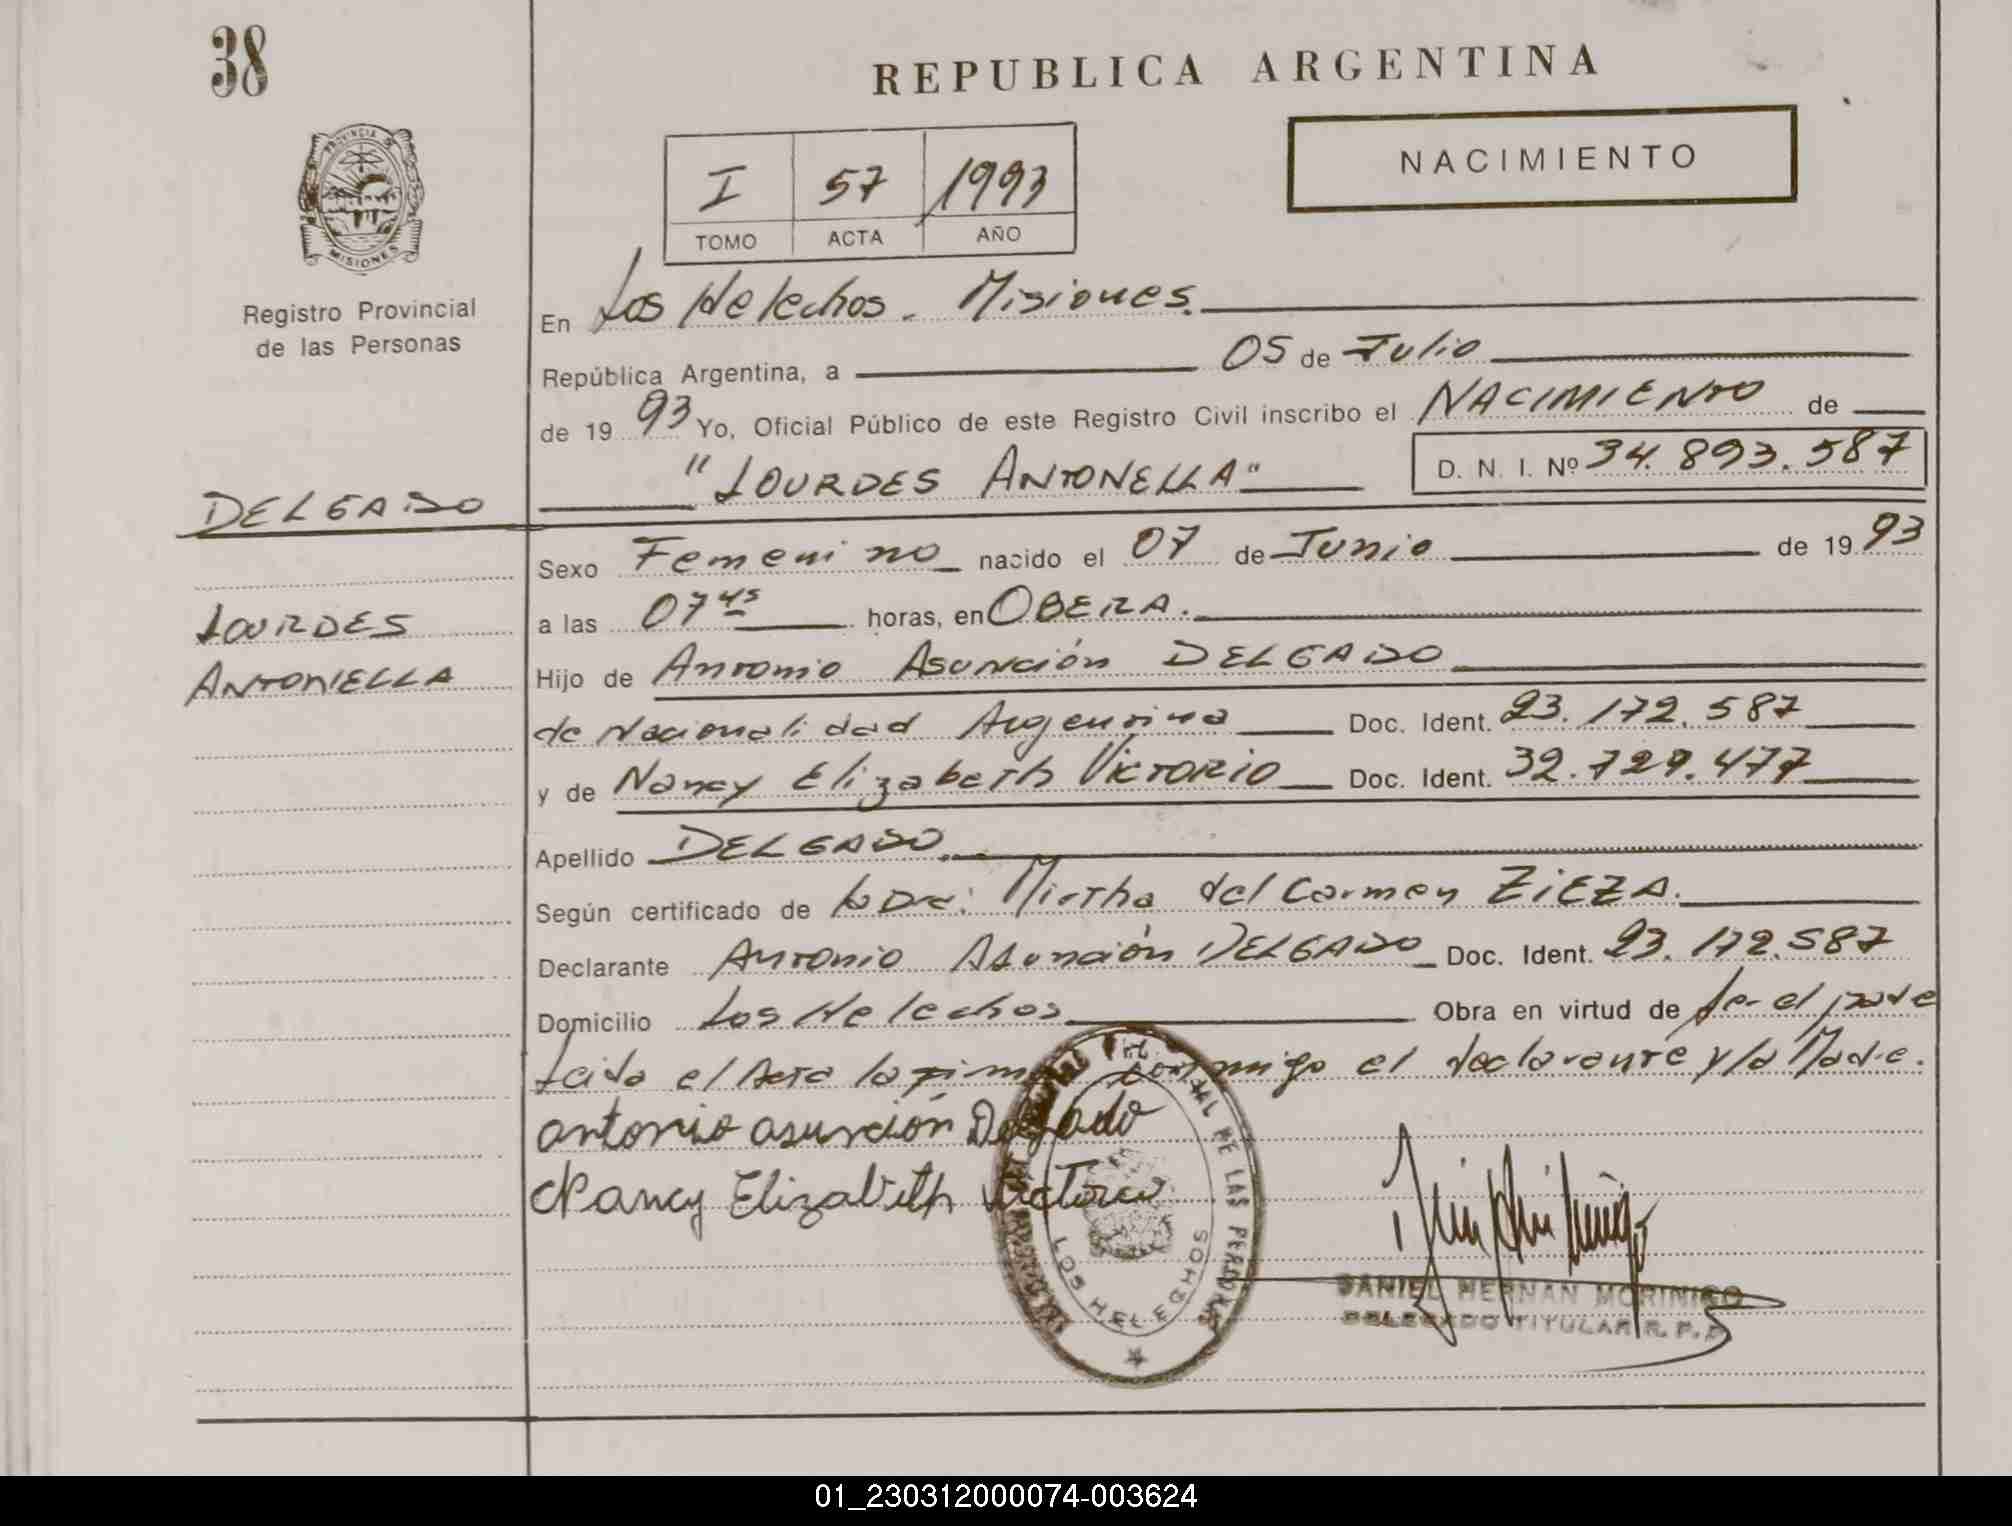 38
REPUBLICA ARGENTINA
NACIMIENTO
I 57 1993
TOMO ACTA AÑO
PROVINCIA DE
MISIONES
Registro Provincial
de las Personas
En Los Helechos. Misiones.
República Argentina, a 05 de Julio
de 19 93 Yo, Oficial Público de este Registro Civil inscribo el NACIMIENTO de
"LOURDES ANTONELLA" D. N. I. Nº 34.893.587
DELGADO
LOURDES
ANTONELLA
Sexo Femenino nacido el 07 de Junio de 19 93
a las 07 45 horas, en OBERA.
Hijo de Antonio Asunción DELGADO
de Nacionalidad Argentina Doc. Ident. 23.172.587
y de Nancy Elizabeth VICTORIO Doc. Ident. 32.729.477
Apellido DELGADO.
Según certificado de la Dra: Mirtha del Carmen ZIEZA.
Declarante Antonio Asunción DELGADO Doc. Ident. 23.172.587
Domicilio Los Helechos Obra en virtud de ser el padre
Leida el Acta la firman conmigo el declarante y la Madre.
antonio asunción Delgado
Nancy Elizabeth Victorio
DE LAS PERSONAS
LOS HELECHOS
DANIEL HERNAN MORINIGO
DELEGADO TITULAR R. P. P.
01_230312000074-003624